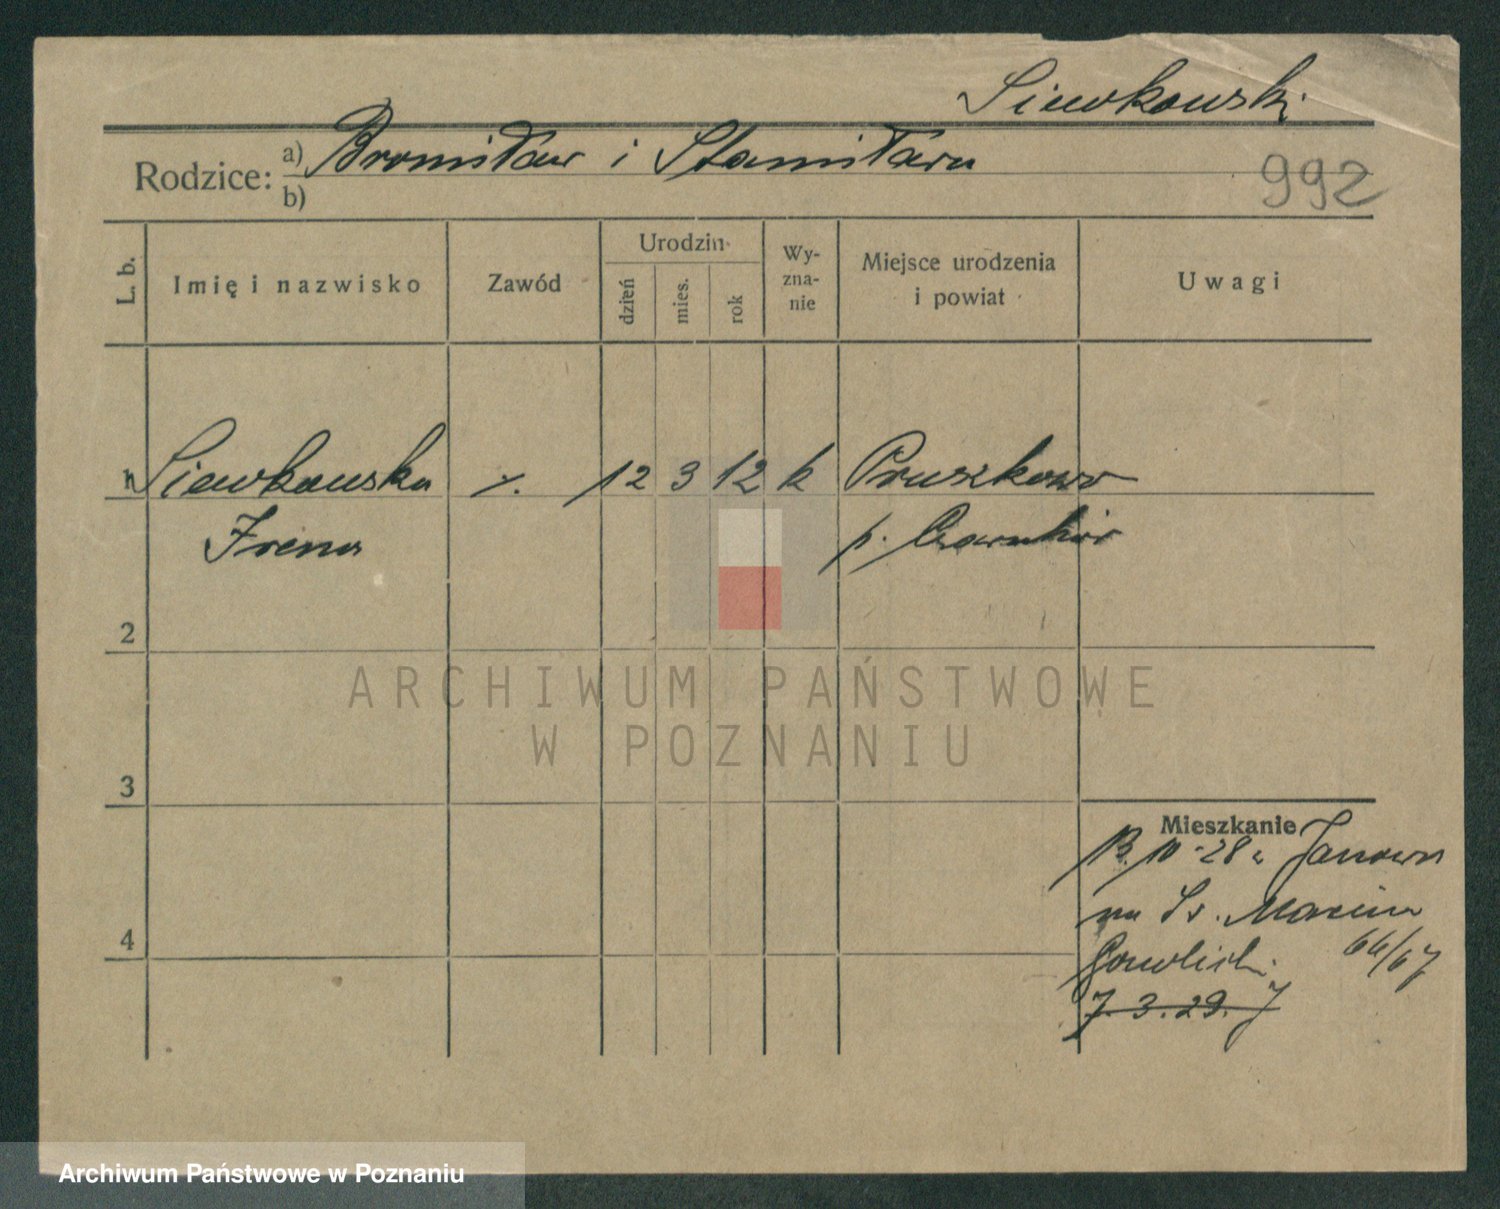 Siewkowski
Rodzice: a) Bronisław i Stanisława
b)
992
L. b.
Imię i nazwisko
Zawód
Urodzin
dzień
mies.
rok
Wy-
zna-
nie
Miejsce urodzenia
i powiat
Uwagi
1 Siewkowska ·/. 12 3 12 k Pruszkowo
Irena p. Czarnków
2
ARCHIWUM PAŃSTWOWE
W POZNANIU
3
Mieszkanie
10-28 z Janowa
na Św. Marcin
66/67
4
7.3.29.
Archiwum Państwowe w Poznaniu